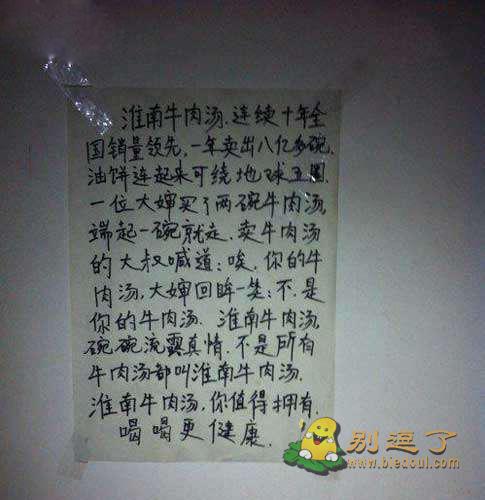 淮南牛肉汤.连续十年全
国销量领先,一年卖出八亿多碗.
油饼连起来可绕地球五圈.
一位大婶买了两碗牛肉汤,
端起一碗就走.卖牛肉汤
的大叔喊道:唉,你的牛
肉汤,大婶回眸一笑:不,是
你的牛肉汤.淮南牛肉汤,
碗碗流露真情.不是所有
牛肉汤都叫淮南牛肉汤.
淮南牛肉汤,你值得拥有.
喝喝更健康.
别逗了
www.biedoul.com